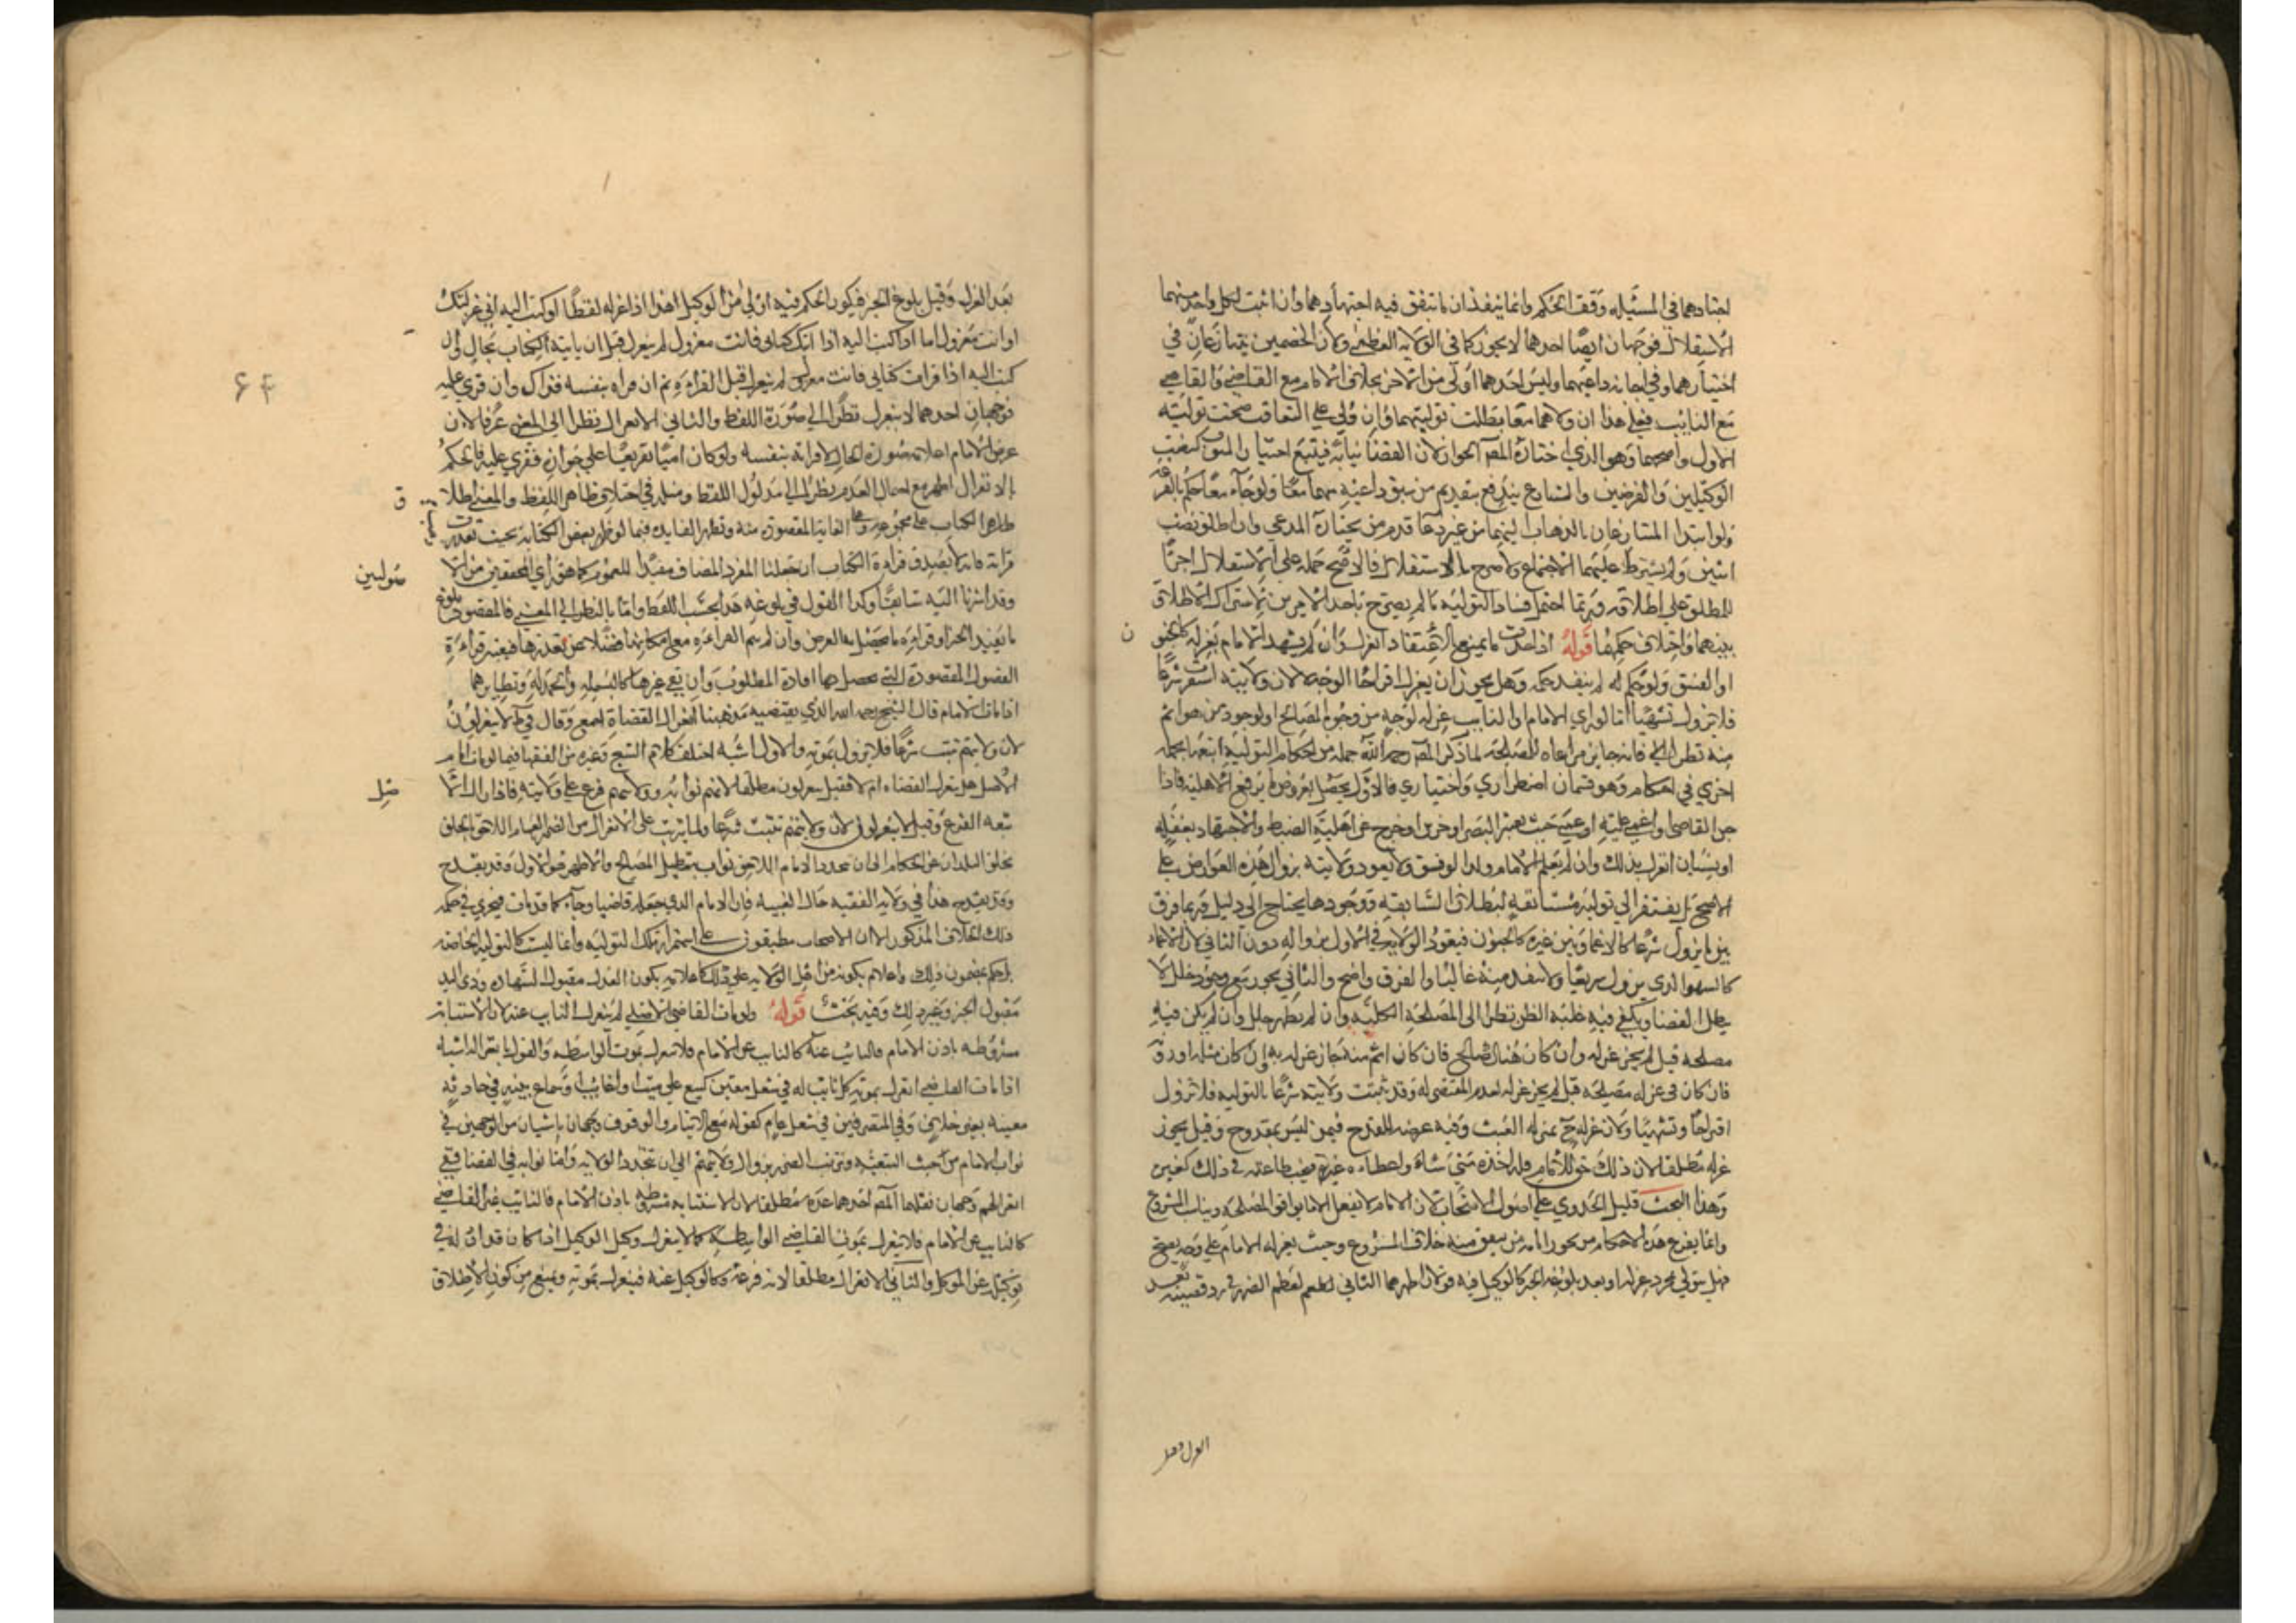 اجتهادهما في المسئله وقف الحكم وانما ينفذان ما يتفق فيه اجتهادهما وان اثبت لكل واحد منهما
الاستقلال فوجهان ايضا احدهما لا يجوز كما في الولايه العظمى ولان الخصمين يتنازعان في
اختيارهما وفي اجابه داعيهما وليس احدهما اولى من الاخر بخلاف الامام مع القاضي والقاضي
مع النايب فعلى هذا ان ولاهما معا بطلت توليتهما وان ولي على التعاقب صحت توليته
الاول واصحهما وهو الذي اختاره المص الجواز لان القضا نيابه فيتبع اختيار المنوب كنصب
الوكيلين والفرضين والتنازع يندفع بتقديم من سبق داعيه منهما معا ولو جاآ معا حكم بالقرعه
ولو ابتدا المتنازعان بالذهاب اليهما من غير دعا قدم من يختاره المدعي وان اطلق نصب
اثنين ولم يشترط عليهما الاجتماع ولا صرح بالاستقلال فالاصح حمله على الاستقلال اجرا
للمطلق على اطلاقه وربما احتمل فساد التوليه ما لم يصرح باحد الامرين لاشتراك الاطلاق
بينهما واختلاف حكمهما قوله اذا حدث ما يمنع الانعقاد انعزل وان لم يشهد الامام بعزله كالجنون
او الفسق ولو حكم له لم ينفذ حكمه وهل يجوز ان يعزل اقتراحا الوجه لا لان ولايته استقرت شرعا
فلا تزول تشهيا اما لو راي الامام او النايب عزله لوجه من وجوه المصالح او لوجود من هو اتم
منه نظرا فانه جايز مراعاه للمصلحه لما ذكر المص رحمه الله جمله من احكام التوليه اتبعها بجمله
اخرى في احكام وهو قسمان اضطراري واختياري فالاول يحصل بعروض ما يرفع الاهليه فاذا
جن القاضي او اغمي عليه او عمي حيث يعتبر البصر او خرس او خرج عن اهليه الضبط والاجتهاد بغفله
او نسيان انعزل بذلك وان لم يعلم الامام وكذا لو فسق ولا يعود ولايته بزوال هذه العوارض على
الاصح بل يفتقر الى توليه مستانفه لبطلان السابقه ووجودها يحتاج الى دليل وربما فرق
بين ما يزول سريعا كالاغما وبين غيره كالجنون فيعود الولايه في الاول بزواله دون الثاني لان الاغماء
كالسهو الذي يزول سريعا ولا ينفك منه غالبا والفرق واضح والثاني يجوز مع وجود خلل لا
يبطل القضا ويكفي فيه غلبه الظن نظرا الى المصلحه الكليه وان لم يظهر خلل وان لم يكن فيه
مصلحه قيل لم يجز عزله وان كان هناك صالح فان كان اتم منه جاز عزله به وان كان مثله او دونه
فان كان في عزله مصلحه قيل لم يجز عزله لعدم المقتضي له وقد ثبتت ولايته شرعا بالتوليه فلا تزول
اقتراحا وتشهيا ولان عزله ح بمنزله العبث وفيه عرضه للقدح فيمن ليس بمقدوح وقيل يجوز
عزله مطلقا لان ذلك حق للامام فله اخذه متى شاء واعطاءه غيره فيجب طاعته في ذلك كغيره
وهذا البحث قليل الجدوي على اصول الاصحاب لان الامام لا يفعل الا ما يوافق المصلحه ويناسب المشروع
وانما يفرع هذه الاحكام من يجوز امامه من يتفق منه خلاف المشروع وحيث يعزله الامام على وجه يصح
فهل يتولي بمجرد عزله او بعد بلوغه الخبر كالوكيل فيه قولان اظهرهما الثاني لعظم الضرر في رد قضيته بعد
العزل وقبل
بعد العزل وقبل بلوغ الخبر فيكون الحكم فيه اولى من الوكيل هذا اذا عزله لفظا او كتب اليه اني عزلتك
او انت معزول اما لو كتب اليه اذا اتاك كتابي فانت معزول لم ينعزل قبل ان ياتيه الكتاب بحال ولو
كتب اليه اذا قرات كتابي فانت معزول لم ينعزل قبل القراءه ثم ان قراه بنفسه فذاك وان قري عليه
فوجهان احدهما لا ينعزل نظرا الى صوره اللفظ والثاني الانعزال نظرا الى المعنى عرفا لان
غرض الامام اعلامه صوره الحال لا قراته بنفسه ولو كان اميا تفريعا على جوازه فقري عليه فالحكم
بالانعزال اظهر مع احتمال العدم نظرا الى مدلول اللفظ ومثله في اختلاف ظاهر اللفظ والمعنى اطلاق
ظاهر الكتاب على مجموعه وعلى الغايه المقصوده منه وتظهر الفايده فيما لو ذهب بعض الكتابه بحيث تعذرت
قراته فانه لا يصدق قراءة الكتاب ان جعلنا المفرد المضاف مفيدا للعموم كما هو راي المحققين من الاصوليين
وقد اشرنا اليه سابقا وكذا القول في بلوغه هذا بحسب اللفظ واما بالنظر الى المعنى فالمقصود بلوغ
ما يفيد الخبر او قراءه ما يحصل به الغرض وان لم يتم القراءه مع امكانها فضلا عن تعذرها فيعتبر قراءة
الفصول المقصودة التي يحصل بها افادة المطلوب وان بقي غيرها كالبسمله والحمدله ونظايرهما
اذا مات الامام قال الشيخ رحمه الله الذي يقتضيه مذهبنا انعزال القضاة اجمع وقال في ط لا ينعزلون
لان ولايتهم ثبتت شرعا فلا تزول بموته والاول اشبه اختلف كلام الشيخ وغيره من الفقها فيما لو مات امام
الاصل هل ينعزل القضاه ام لا فقيل ينعزلون مطلقا لانهم نوابه وولايتهم فرع على ولايته فاذا زال الاصل
تبعه الفرع وقيل لا ينعزلون لان ولايتهم تثبت شرعا ولما يترتب على الانعزال من الضرر العام اللاحق بالخلق
بخلو البلدان عن الحكام الى ان يجدد الامام اللاحق نواب فتعطل المصالح والاظهر هو الاول وقد يقدح
وقد يقدح هذا في ولايه الفقيه حال الغيبه فان الامام الذي جعله قاضيا وحاكما قد مات فيجري في حكمه
ذلك الخلاف المذكور الا ان الاصحاب مطبقون على استمرار تلك التوليه وانها ليست كالتوليه الخاصه
بل حكم بمضمون ذلك واعلام بكونه من اهل الولايه على ذلك كاعلامه بكون العدل مقبول الشهاده وذي اليد
مقبول الخبر وغير ذلك وفيه بحث قوله ولو مات القاضي الاصلي لم ينعزل النايب عنه لان الاستنابه
مشروطه باذن الامام فالنايب عنه كالنايب عن الامام فلا ينعزل بموت الواسطه والقول بانعزاله اشبه
اذا مات القاضي انعزل بموته كل نايب له في شغل معين كبيع على ميت او غايب وسماع بينه في حادثه
معينه بغير خلاف وفي المتصرفين في شغل عام كقوام الايتام والوقوف وجهان ناشيان من الوجهين في
نواب الامام من حيث التبعيه وترتب الضرر بزوال ولايتهم الى ان تجدد الولايه واما نوابه في القضا ففي
انعزالهم وجهان نقلهما المص احدهما عدمه مطلقا لان الاستنابه مشروطه باذن الامام فالنايب عن القاضي
كالنايب عن الامام فلا ينعزل بموت القاضي الواسطه كما لا ينعزل وكيل الوكيل اذا كان قد اذن له في
توكيله عن الموكل والثاني الانعزال مطلقا لانه فرعه وكالوكيل عنه فينعزل بموته ويمنع من كون الاطلاق